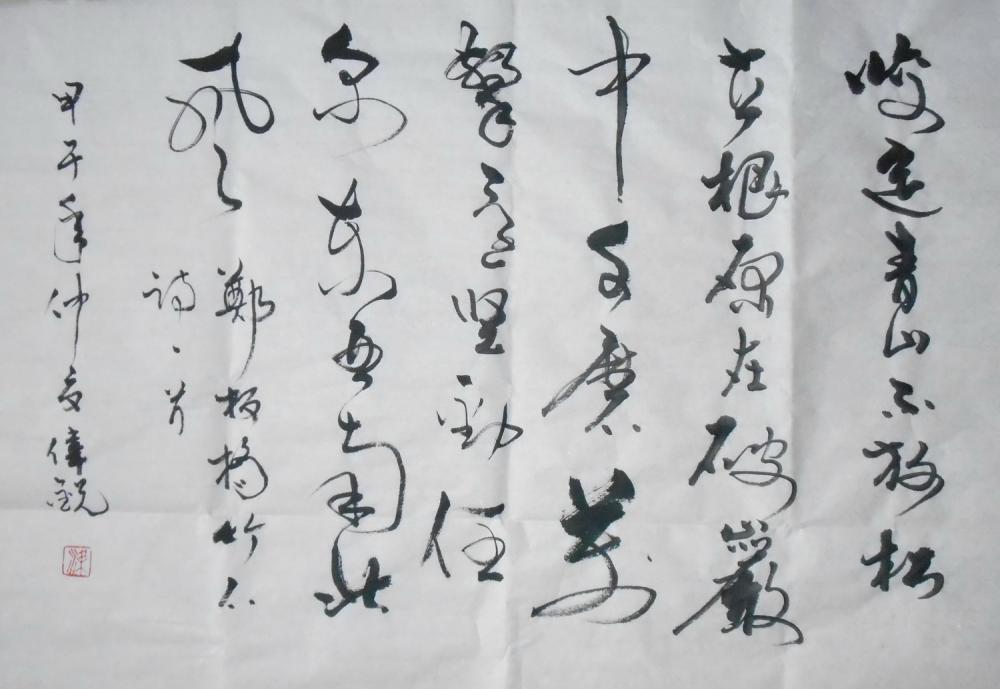 咬定青山不放松
立根原在破巖
中千磨萬
擊还坚劲任
尔东西南北
风 鄭板橋竹石
詩一首
甲午年仲夏偉銳